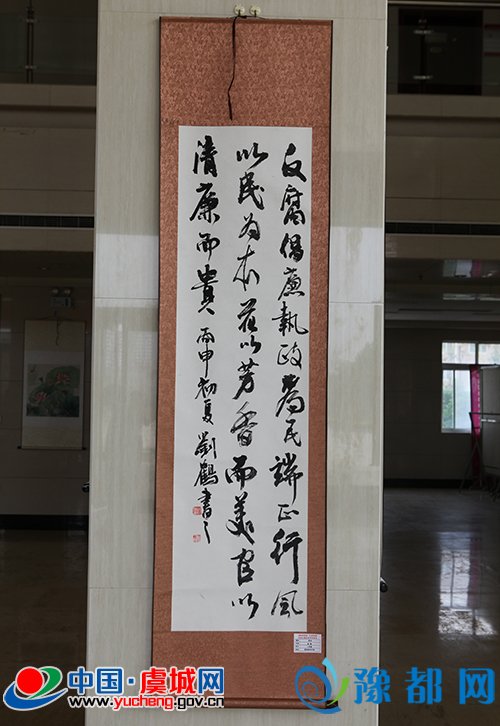 反腐倡廉執政為民端正行風
以民为本花以芳香而美官以
清廉而貴
丙申初夏劉鶴書之
中国·虞城网
www.yucheng.gov.cn
豫都网